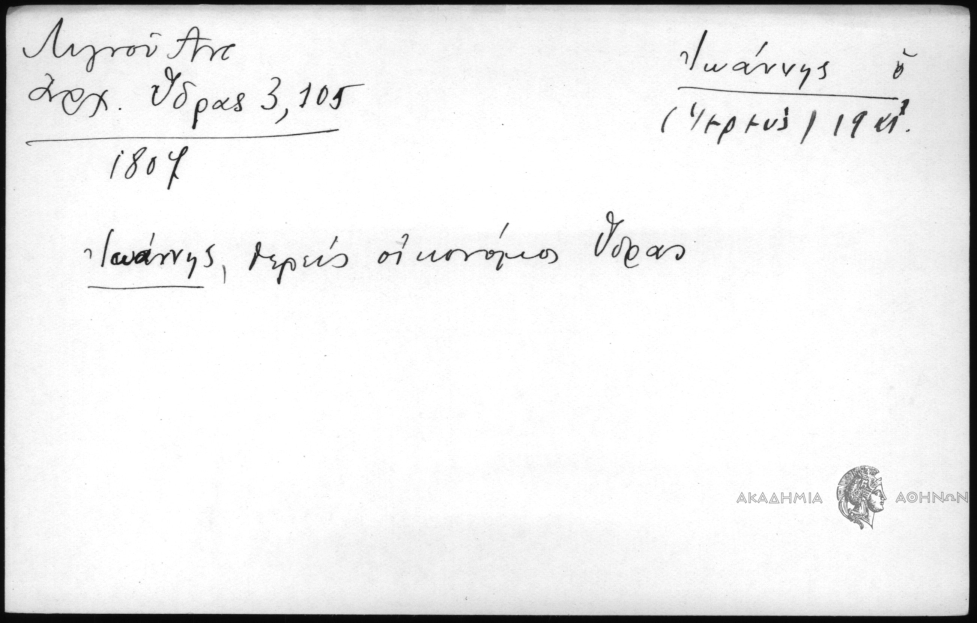 Λιγνού Αντ
Ἀρχ. Ὕδρας 3, 105
1807
Ἰωάννης ὁ
(ἱερεύς) 19 αἰ.
Ἰωάννης, ἱερεύς οἰκονόμος Ὕδρας
ΑΚΑΔΗΜΙΑ ΑΘΗΝΩΝ